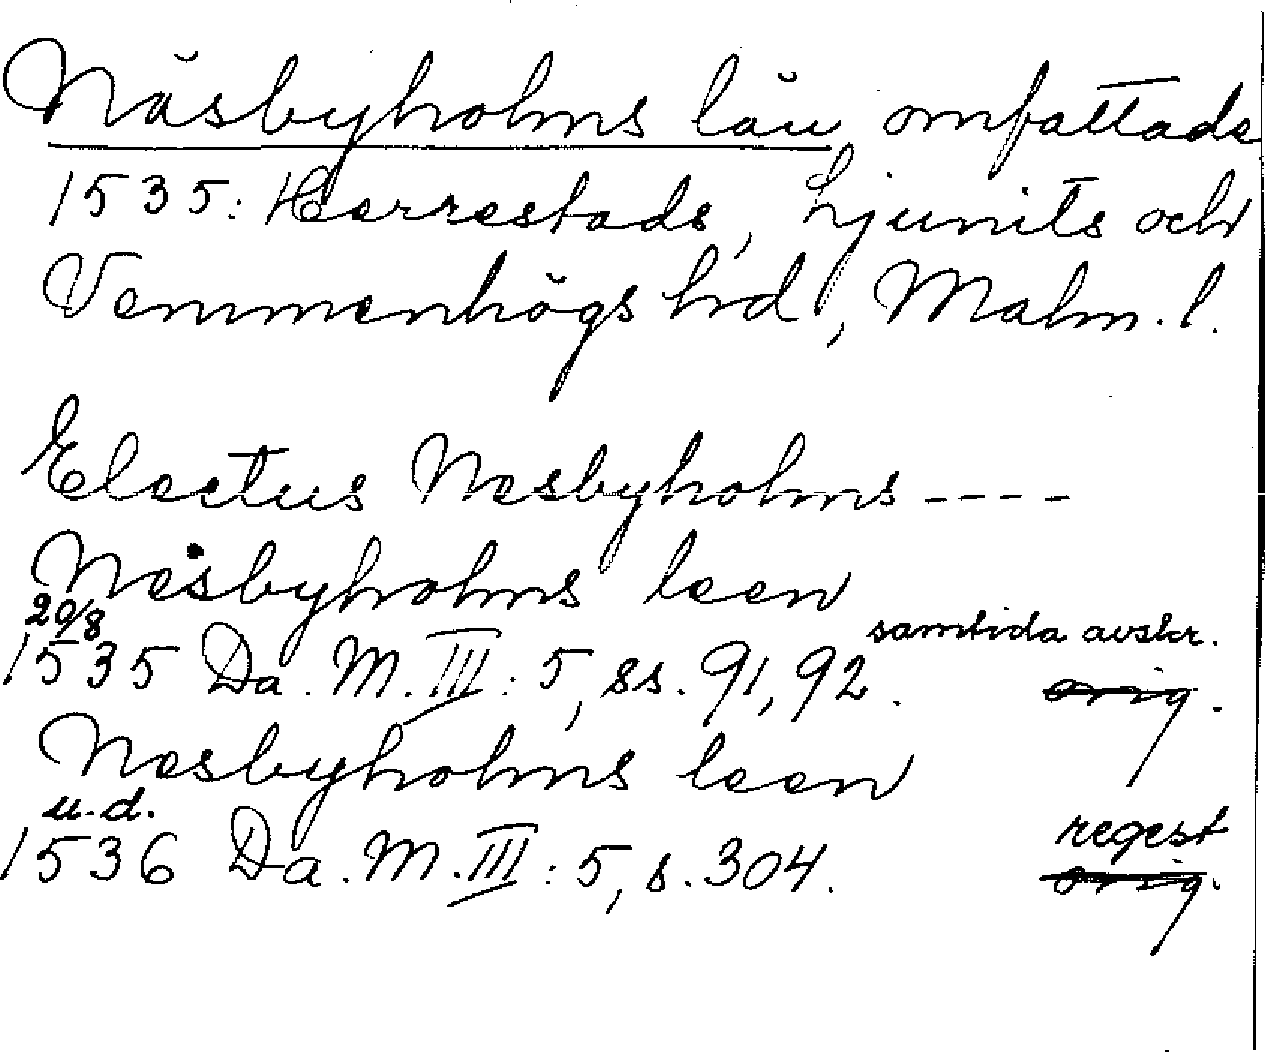 Näsbyholms län omfattade
1535: Herrestads, Ljunits och
Vemmenhögs hrd, Malm. l.
Electus Nesbyholms ----
Nesbyholms leen
20/8 samtida avskr.
1535 Da. M. III: 5, ss. 91, 92. orig.
Nesbyholms leen
u.d. regest
1536 Da. M. III: 5, s. 304. orig.